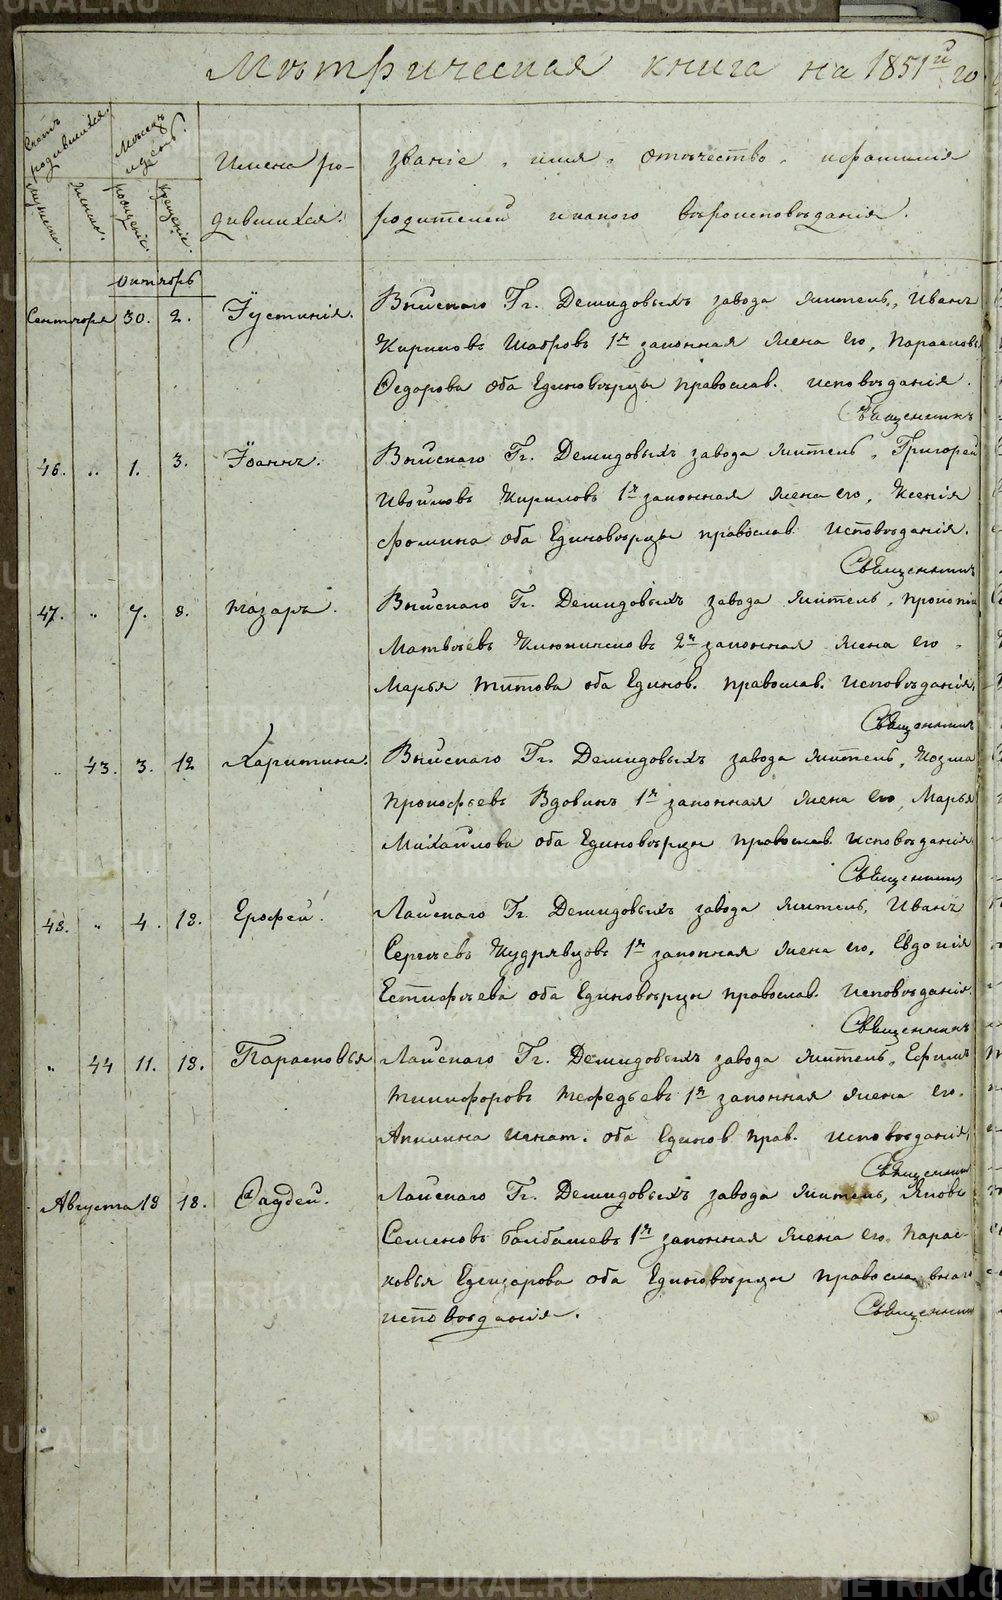 Метрическая книга на 1851й го
Счетъ родившихся.
Мужска.
Женска.
Месяцъ и день.
рожденіе.
крещеніе.
Имена ро-
дившихся.
званіе, имя, отечество, ифамилія
родителей икакого вѣроисповѣданія.
Октябрь
Сентября 30. 2. Іустинія.
Выйскаго Гг. Демидовыхъ завода житель, Иванъ
Кириловъ Шабровъ 1я законная жена его, Парасковья
Федорова оба Единовѣрцы православ. исповѣданія.
Священникъ
46. „ 1. 3. Іоаннъ.
Выйскаго Гг. Демидовыхъ завода житель, Григорей
Ивойловъ Кириловъ 1я законная жена его, Ксенія
Фомина оба Единовѣрцы православ. исповѣданія.
Священникъ
47. „ 7. 8. Назаръ.
Выйскаго Гг. Демидовыхъ завода житель, Прокопій
Матвѣевъ 2я законная жена его,
Марья Титова оба Единов. православ. исповѣданія.
Священникъ
„ 43. 3. 12 Харитина.
Выйскаго Гг. Демидовыхъ завода житель, Козма
Прокофьевъ Вдовинъ 1я законная жена его, Марья
Михайлова оба Единовѣрцы православ. исповѣданія
Священникъ
48. „ 4. 18. Ерофей.
Лайскаго Гг. Демидовыхъ завода житель, Иванъ
Сергѣевъ Кудрявцовъ 1я законная жена его, Евдокія
Естифѣева оба Единовѣрцы православ. исповѣданія.
Священникъ
„ 44 11. 18. Парасковья
Лайскаго Гг. Демидовыхъ завода житель, Ефимъ
Никифоровъ Нефедьевъ 1я законная жена его.
Акилина Игнат. оба Единов прав. исповѣданія,
Священник
Августа 18 18. Фаддей.
Лайскаго Гг. Демидовыхъ завода житель, Яковъ
Семеновъ Балбашевъ 1я законная жена его Парас-
ковья Елизарова оба Единовѣрцы православнаго
исповѣданія. Священник
METRIKI.GASO-URAL.RU